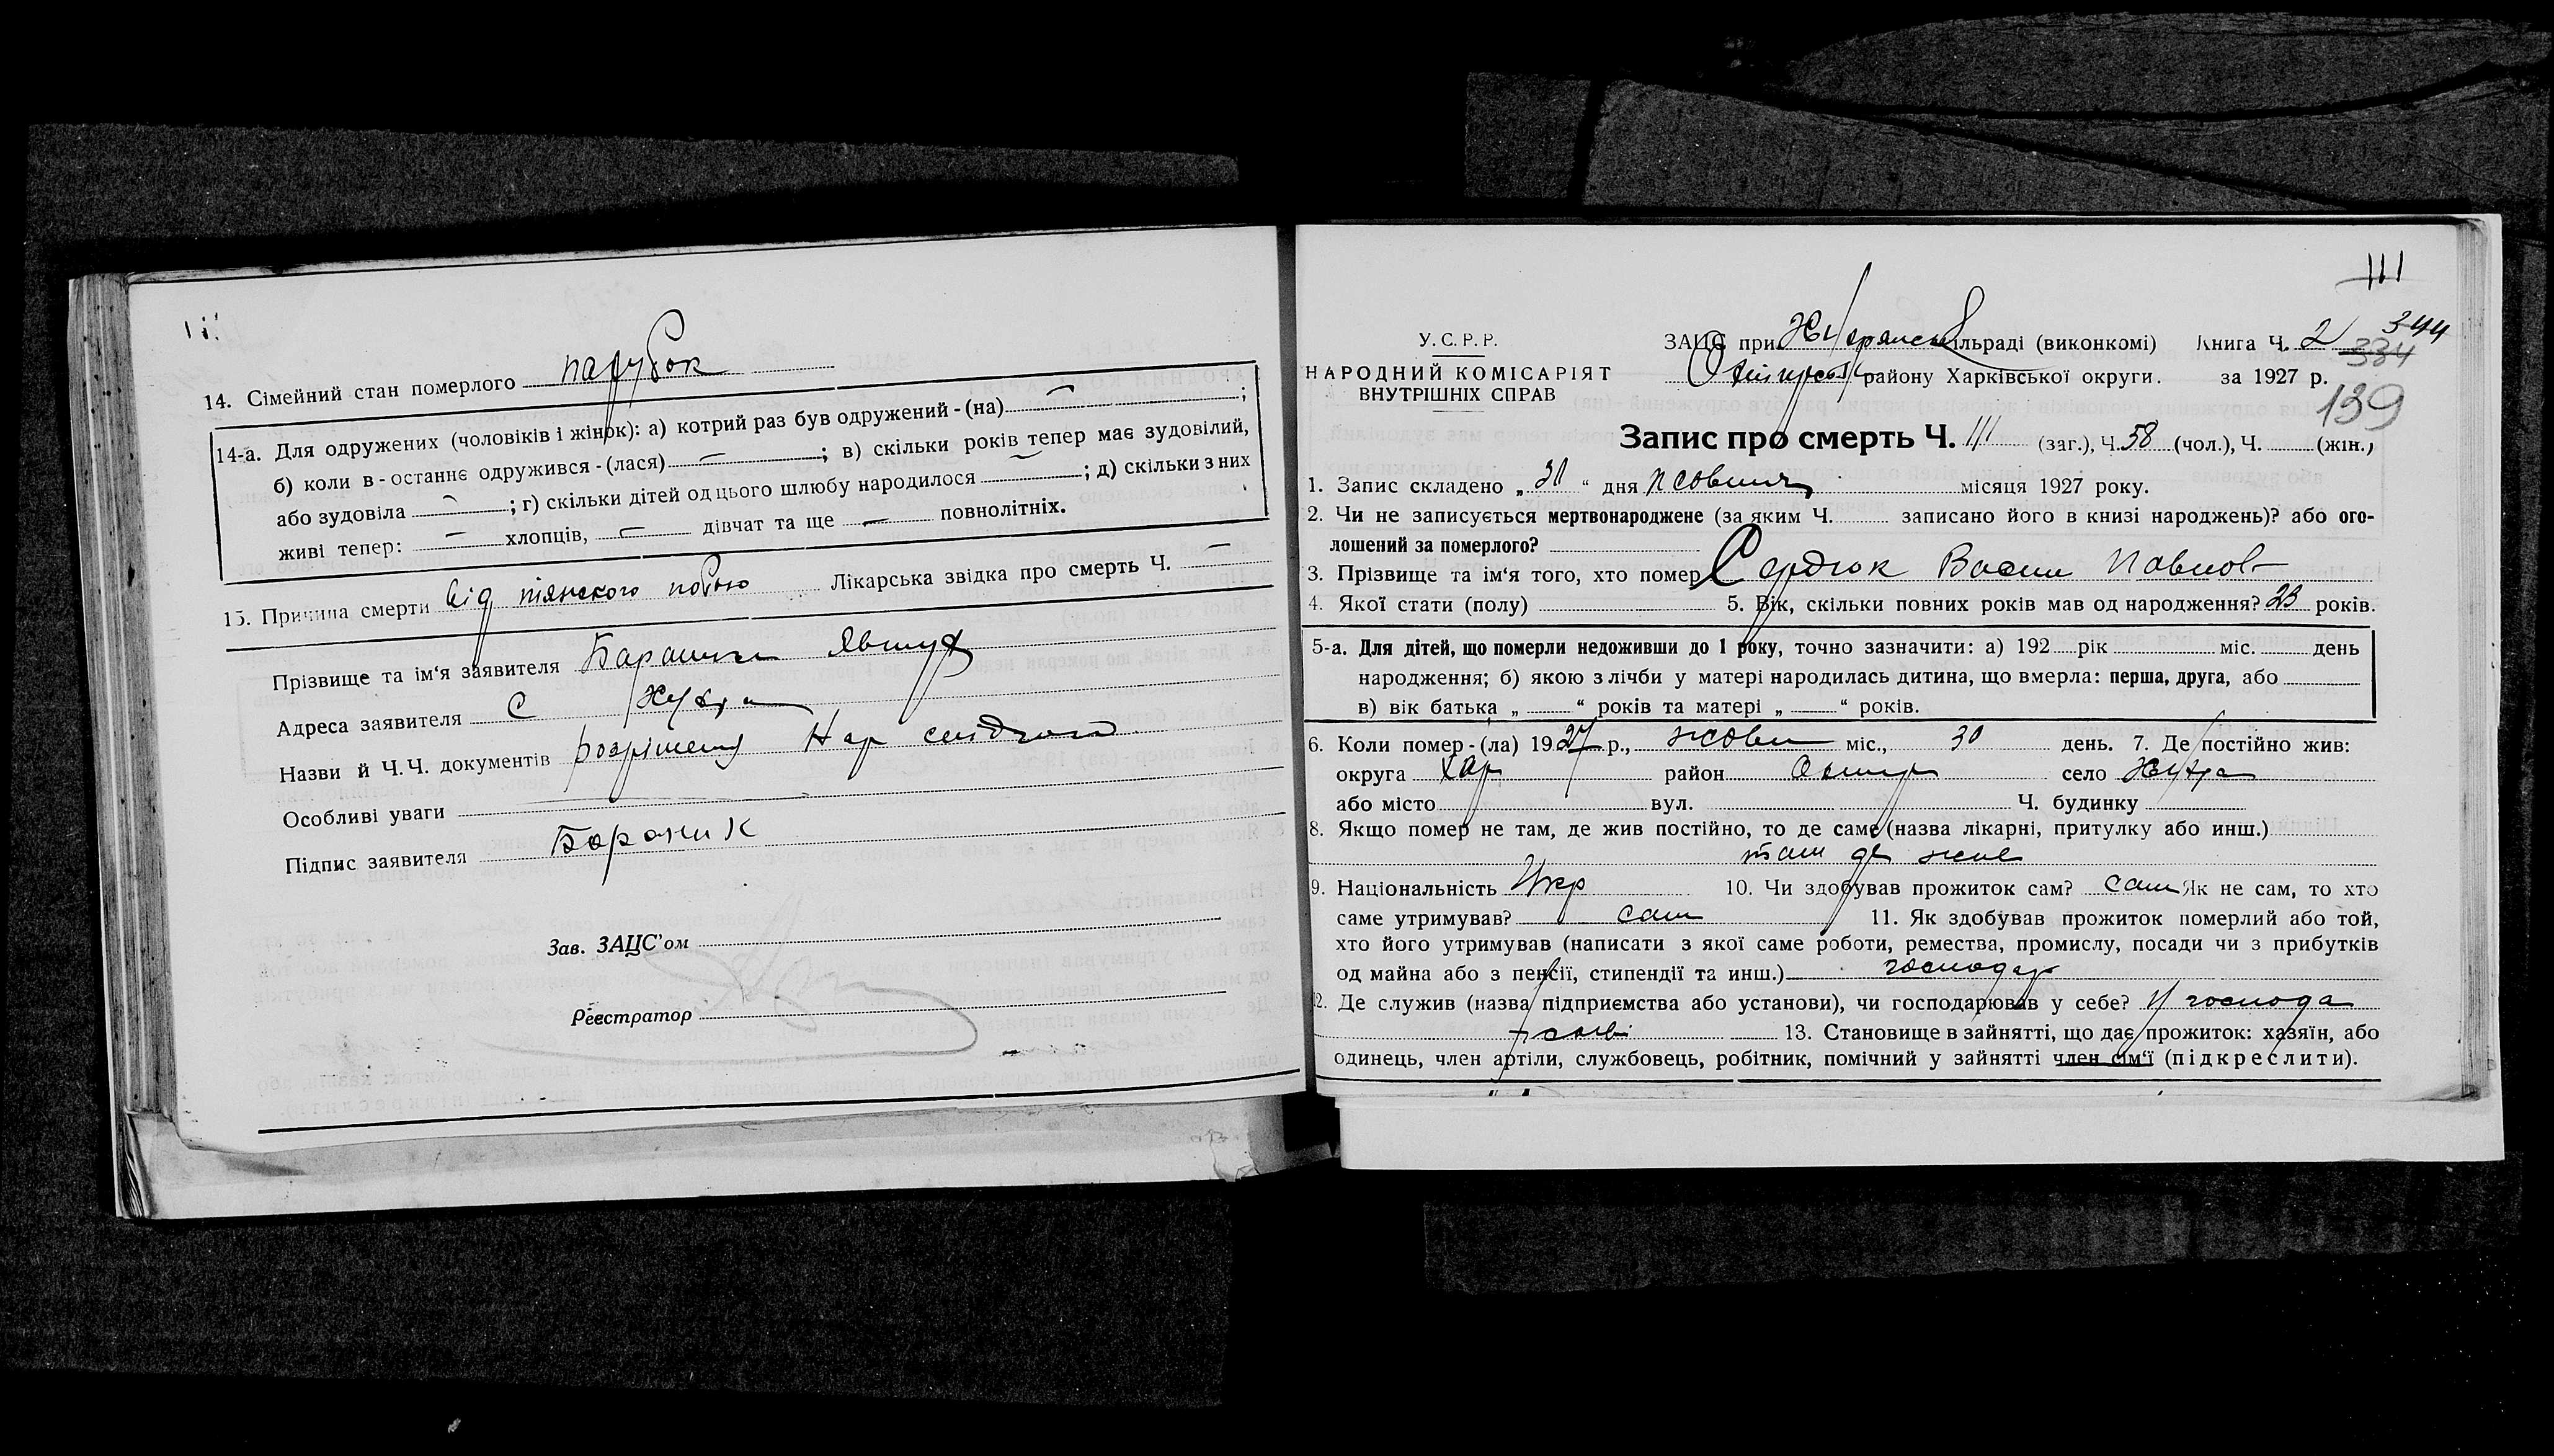 14. Сімейний стан померлого парубок
14-а. Для одружених (чоловіків і жінок): а) котрий раз був одружений-(на) — ;
б) коли в-останнє одружився-(лася) — ; в) скільки років тепер має зудовілий,
або зудовіла — ; г) скільки дітей од цього шлюбу народилося — ; д) скільки з них
живі тепер: — хлопців, — дівчат та ще — повнолітніх.
15. Причина смерти від пянского побою Лікарська звідка про смерть Ч. —
Прізвище та ім'я заявителя Явтух
Адреса заявителя С
Назви й Ч.Ч. документів Нар
Особливі уваги
Підпис заявителя Бароник
Зав. ЗАЦС'ом
Реєстратор
111
У.С.Р.Р.
НАРОДНИЙ КОМІСАРІЯТ
ВНУТРІШНІХ СПРАВ
ЗАЦС при сільраді (виконкомі) Книга Ч. 2 344
334
району Харківської округи. за 1927 р.
139
Запис про смерть Ч. 111 (заг.), Ч. 58 (чол.), Ч. (жін.)
1. Запис складено „ 30 “ дня жовтня місяця 1927 року.
2. Чи не записується мертвонароджене (за яким Ч. записано його в книзі народжень)? або ого-
лошений за померлого?
3. Прізвище та ім'я того, хто помер Сердюк Васил Павлов
4. Якої стати (полу) 5. Вік, скільки повних років мав од народження? 23 років.
5-а. Для дітей, що померли недоживши до 1 року, точно зазначити: а) 192 рік міс. день
народження; б) якою з лічби у матері народилась дитина, що вмерла: перша, друга, або
в) вік батька „ “ років та матері „ “ років.
6. Коли помер-(ла) 1927 р., жовт міс., 30 день. 7. Де постійно жив:
округа Хар район село
або місто вул. Ч. будинку
8. Якщо помер не там, де жив постійно, то де саме (назва лікарні, притулку або инш.)
там де жив
9. Національність Укр 10. Чи здобував прожиток сам? сам Як не сам, то хто
саме утримував? сам 11. Як здобував прожиток померлий або той,
хто його утримував (написати з якої саме роботи, ремества, промислу, посади чи з прибутків
од майна або з пенсії, стипендії та инш.) господар
12. Де служив (назва підприємства або установи), чи господарював у себе? У господа
рсві 13. Становище в зайнятті, що дає прожиток: хазяїн, або
одинець, член артіли, службовець, робітник, помічний у зайнятті член сім'ї (підкреслити).